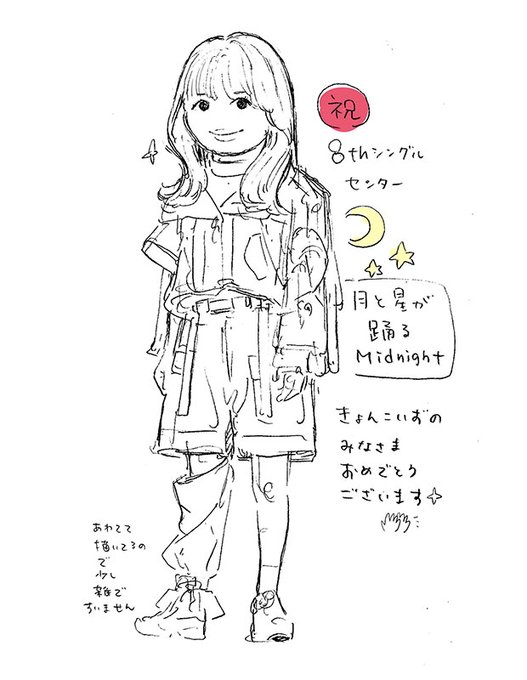 祝
8thシングル
センター
月と星が
踊る
Midnight
きょんこいずの
みなさま
おめでとう
ございます
あわてて
描いてるの
で
少し
雑で
すいません